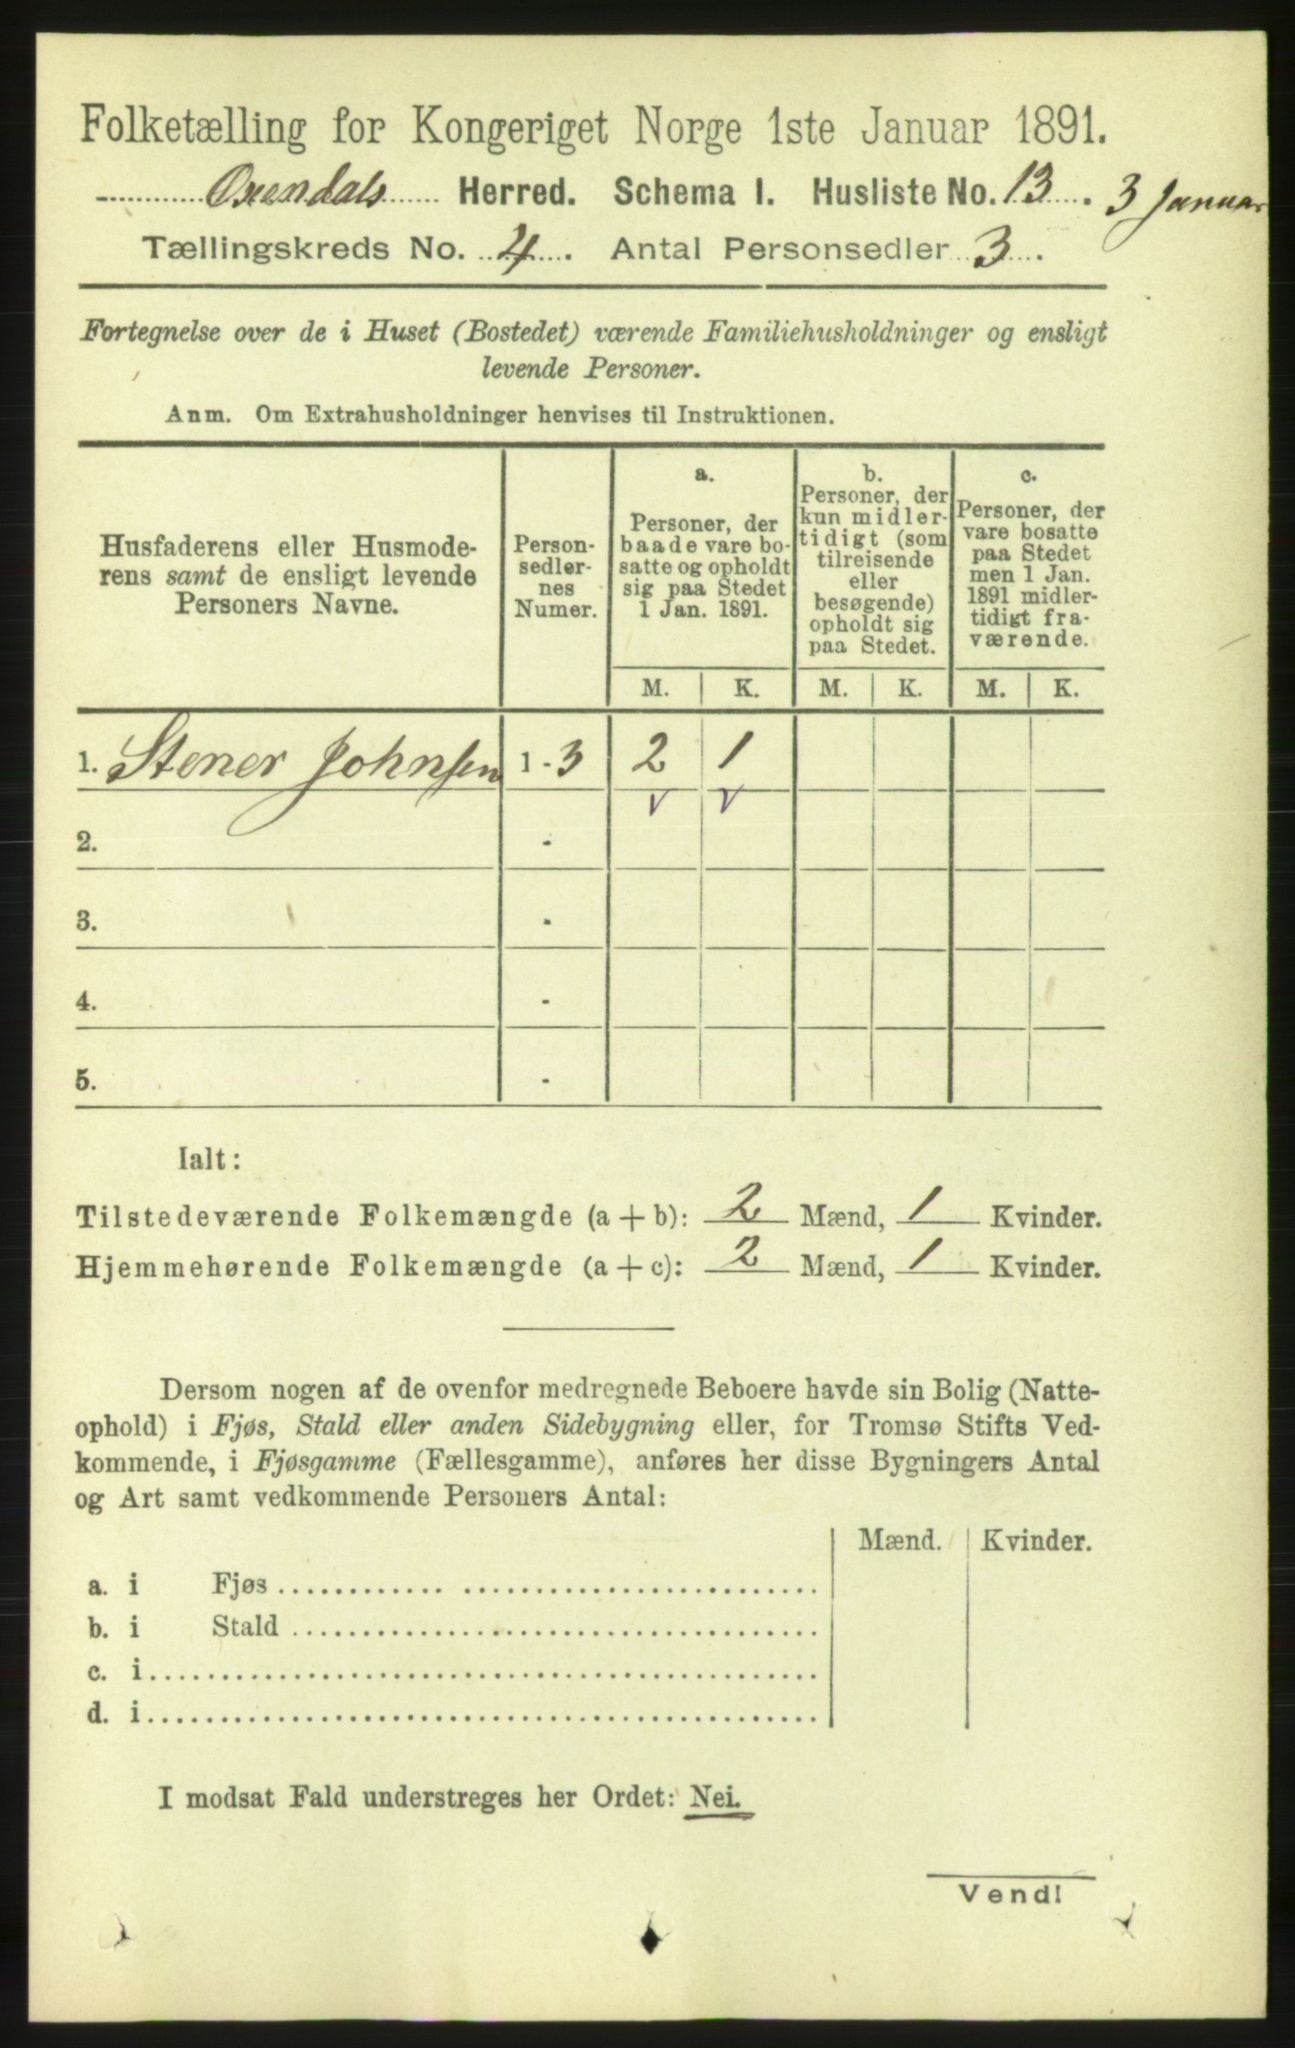 Folketælling for Kongeriget Norge 1ste Januar 1891.
Øxendals Herred. Schema I. Husliste No. 13. 3 Januar
Tællingskreds No. 4. Antal Personsedler 3.
Fortegnelse over de i Huset (Bostedet) værende Familiehusholdninger og ensligt
levende Personer.
Anm. Om Extrahusholdninger henvises til Instruktionen.
Husfaderens eller Husmode-
rens samt de ensligt levende
Personers Navne.
Person-
sedler-
nes
Numer.
a.
Personer, der
baade vare bo-
satte og opholdt
sig paa Stedet
1 Jan. 1891.
b.
Personer, der
kun midler-
tidigt (som
tilreisende
eller
besøgende)
opholdt sig
paa Stedet.
c.
Personer, der
vare bosatte
paa Stedet
men 1 Jan.
1891 midler-
tidigt fra-
værende.
M. K. M. K. M. K.
1. Stener Johnsen 1 - 3 2 1
2. -
3. -
4. -
5. -
Ialt:
Tilstedeværende Folkemængde (a + b): 2 Mænd, 1 Kvinder.
Hjemmehørende Folkemængde (a + c): 2 Mænd, 1 Kvinder.
Dersom nogen af de ovenfor medregnede Beboere havde sin Bolig (Natte-
ophold) i Fjøs, Stald eller anden Sidebygning eller, for Tromsø Stifts Ved-
kommende, i Fjøsgamme (Fællesgamme), anføres her disse Bygningers Antal
og Art samt vedkommende Personers Antal:
Mænd. Kvinder.
a. i Fjøs
b. i Stald
c. i
d. i
I modsat Fald understreges her Ordet: Nei.
Vend!